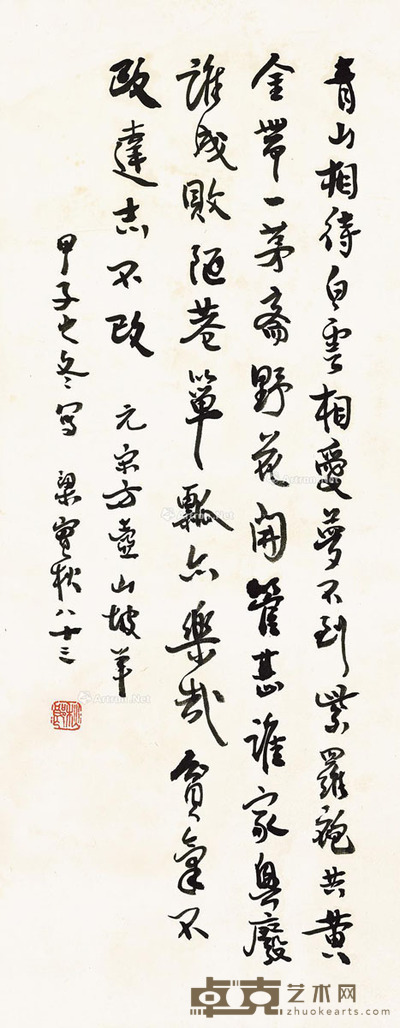 青山相待白雲相愛夢不到紫羅袍共黄
金帶一茅齋野花開管甚誰家興廢
誰成敗陋巷簞瓢亦樂哉貧氣不
改達志不改 元宋方壺山坡羊
甲子之冬寫 梁實秋八十三
Artron.Net
卓克艺术网
zhuokearts.com